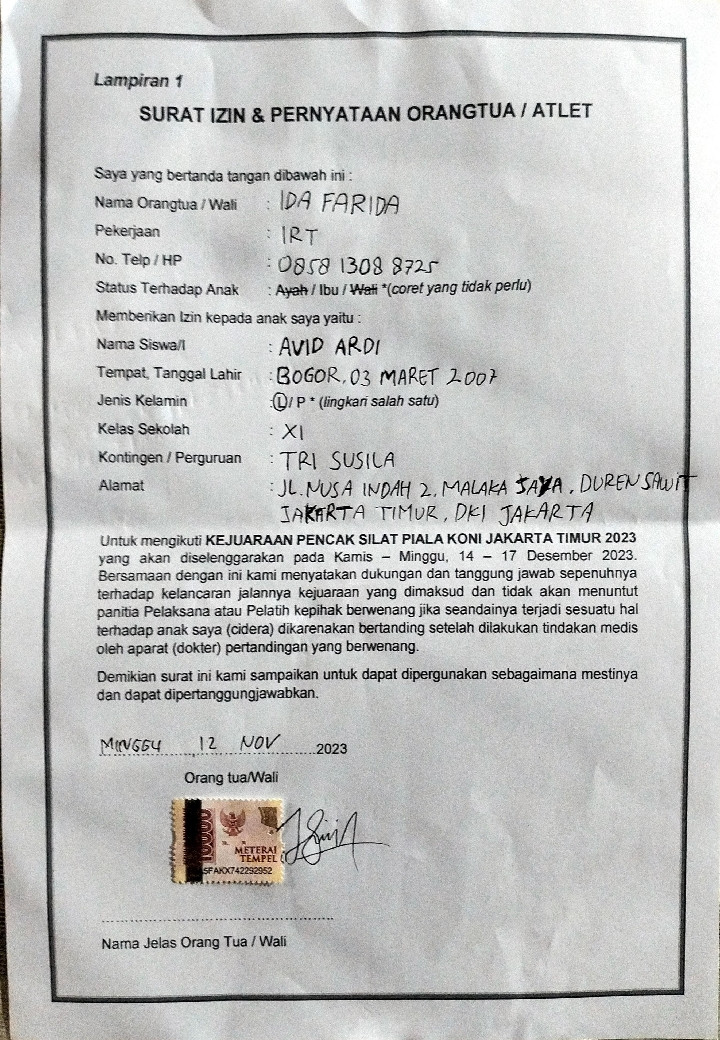 Lampiran 1
SURAT IZIN & PERNYATAAN ORANGTUA / ATLET
Saya yang bertanda tangan dibawah ini :
Nama Orangtua / Wali : IDA FARIDA
Pekerjaan : IRT
No. Telp / HP : 0858 1308 8725
Status Terhadap Anak : Ayah / Ibu / Wali *(coret yang tidak perlu)
Memberikan Izin kepada anak saya yaitu :
Nama Siswa/I : AVID ARDI
Tempat, Tanggal Lahir : BOGOR, 03 MARET 2007
Jenis Kelamin : L / P * (lingkari salah satu)
Kelas Sekolah : XI
Kontingen / Perguruan : TRI SUSILA
Alamat : JL. NUSA INDAH 2, MALAKA JAYA, DUREN SAWIT
JAKARTA TIMUR, DKI JAKARTA
Untuk mengikuti KEJUARAAN PENCAK SILAT PIALA KONI JAKARTA TIMUR 2023
yang akan diselenggarakan pada Kamis – Minggu, 14 – 17 Desember 2023.
Bersamaan dengan ini kami menyatakan dukungan dan tanggung jawab sepenuhnya
terhadap kelancaran jalannya kejuaraan yang dimaksud dan tidak akan menuntut
panitia Pelaksana atau Pelatih kepihak berwenang jika seandainya terjadi sesuatu hal
terhadap anak saya (cidera) dikarenakan bertanding setelah dilakukan tindakan medis
oleh aparat (dokter) pertandingan yang berwenang.
Demikian surat ini kami sampaikan untuk dapat dipergunakan sebagaimana mestinya
dan dapat dipertanggungjawabkan.
MINGGU, 12 NOV 2023
Orang tua/Wali
10000
METERAI
TEMPEL
5FAKX742292952
Nama Jelas Orang Tua / Wali